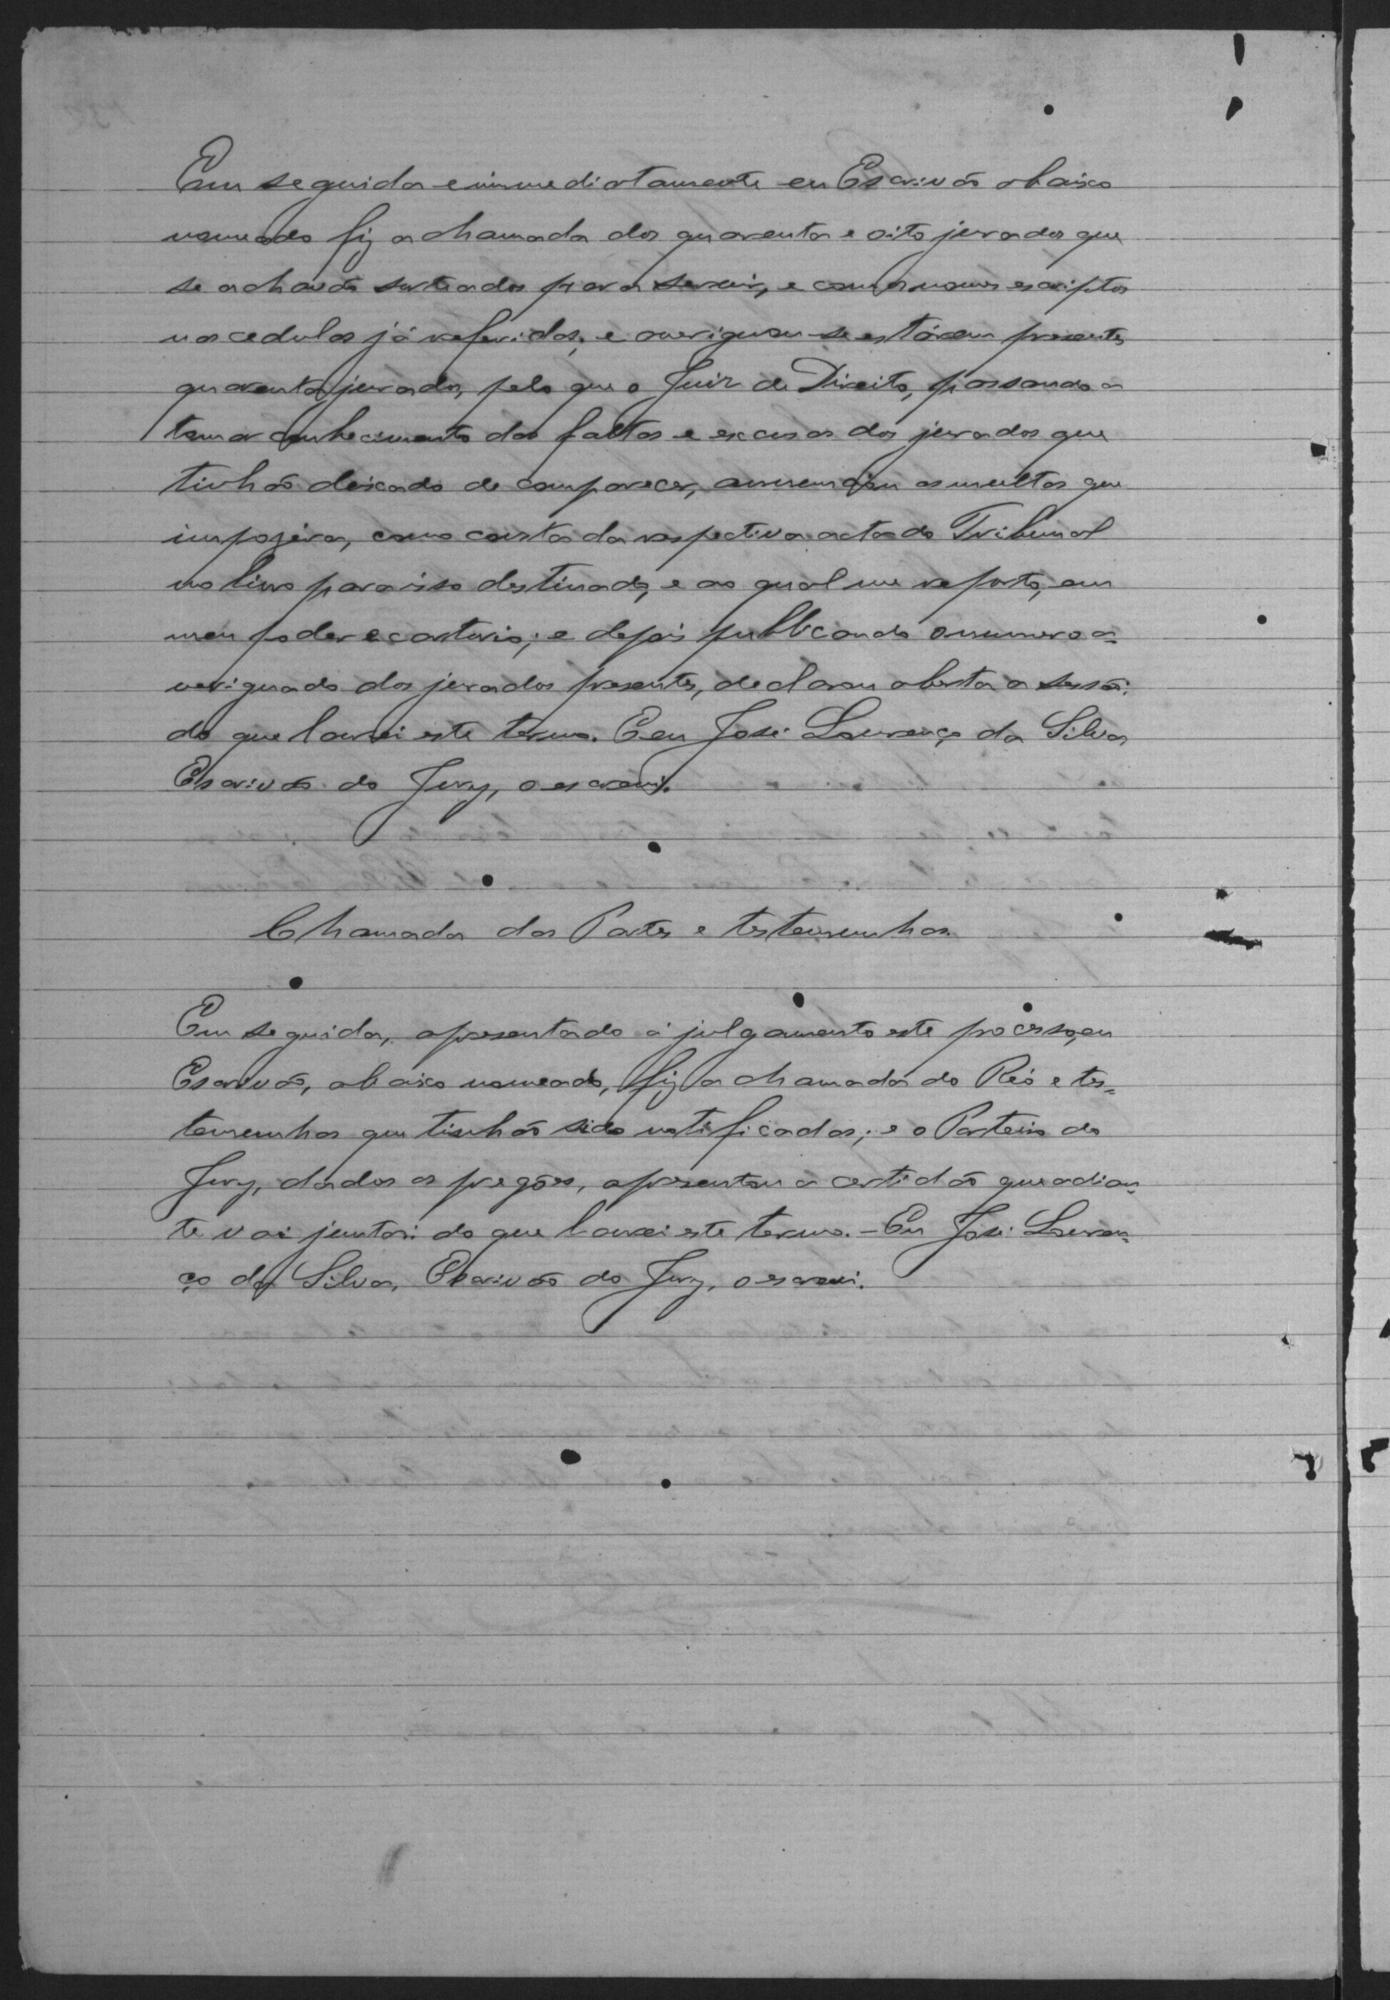 Em seguida e immediatamente eu Escrivão abaixo
nomeado fiz a chamada dos quarenta e oito jurados que
se achavão sorteados para servir, e com os nomes escriptos
nas cedulas já referidas; e averiguou-se estárem presentes
quarenta jurados, pelo que o Juiz de Direito, passando a
tomar conhecimento das faltas e escusas dos jurados que
tinhão deixado de comparecer, annunciou as multas que
impozéra, como consta da respectiva acta do Tribunal
no livro para isso destinado, e ao qual me reporto, em
meu poder e cartorio; e depois publicando o numero a-
veriguado dos jurados presentes, declarou aberta a sessão:
do que lavrei este termo. E eu José Lourenço da Silva
Escrivão do Jury, o escrevi.
Chamada das Partes e testemunhas
Em seguida, apresentado á julgamento este processo, eu
Escrivão, abaixo nomeado, fiz a chamada do Réo e tes-
temunhas que tinhão sido notificadas; e o Porteiro do
Jury, dados os pregões, apresentou a certidão que adian-
te vai junta: do que lavrei este termo. - Eu José Louren-
ço da Silva, Escrivão do Jury, o escrevi.